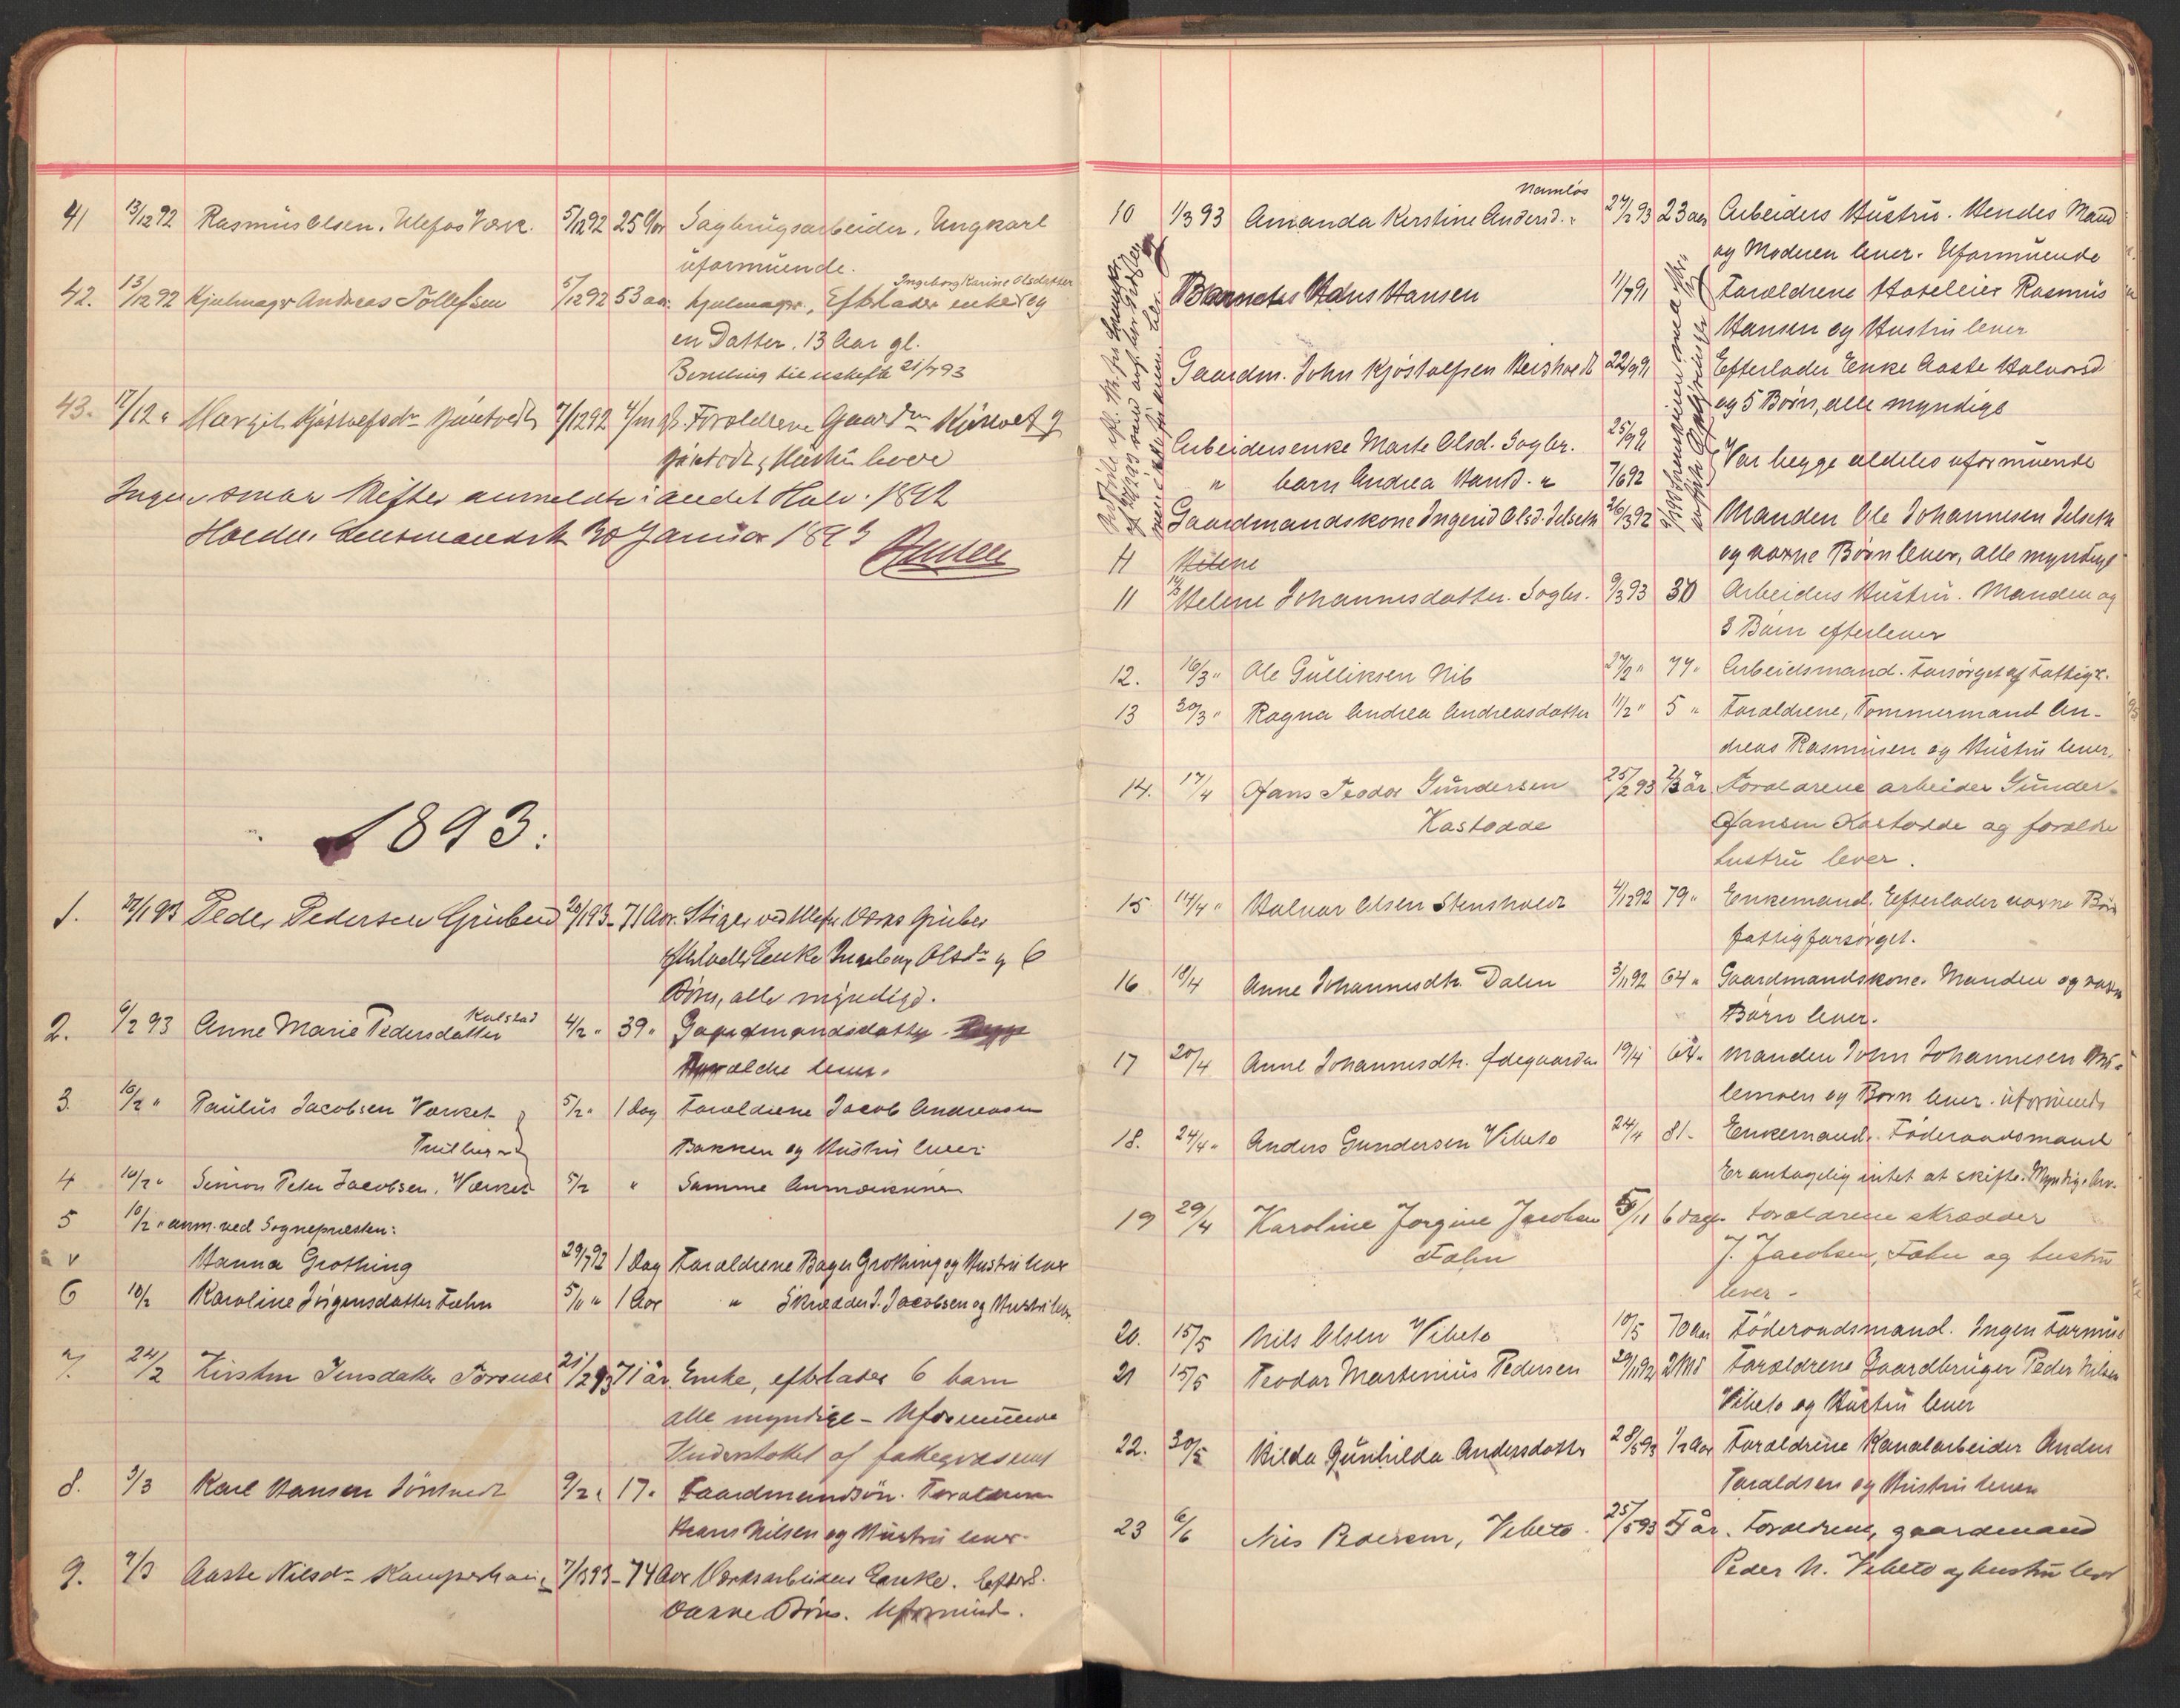 41 13/12 92 Rasmus Olsen. Ulefos Værk. 5/12 92 25 Aar Sagbrugsarbeider. Ungkarl
uformuende.
42. 13/12 92 Hjulmager Andreas Tollefsen 5/12 92 53 aar. Hjulmager, Efterlader enke og
Ingeborg Karine Olsdatter
en Datter. 13 Aar gl.
Bevilling til uskifte 21/1 93
43. 17/12 " Margit Kjøstvefsdr 7/12 92 4/m gl. Forældrene Gaardm
Hustru lever
Ingen Skifter anmeldte i andet Halv. 1892
Holden Lensmandsk 30 Januar 1893
1893:
1. 21/1 93 Peder Pedersen Gruben 20/1 93 - 71 Aar. Stiger ved Ulefos Værks Gruber
efterlader Enke Ingeborg Olsdr og 6
Børn, alle myndige.
2. 6/2 93 Anne Marie Pedersdatter Kolstad 4/2 " 39 " Gaardmandsdatter.
Forældre lever.
3. 10/2 " Paulus Jacobsen Værket 5/2 " 1 Dag Forældrene Jacob Andreasen
Tvillinger Bakken og Hustru lever
4 10/2 " Simon Peter Jacobsen. Værket 5/2 " Samme Anmærkning
5 10/2 " anm. ved Sognepræsten:
v Hanna Grothing 29/7 92 1 Dag Forældrene Bager Grothing og Hustru lever
6 10/2 Karoline Jörgensdatter Fæhn 5/11 " 1 Aar " Skrædder J. Jacobsen og Hustru lever.
7. 24/2 Kirsten Jensdatter 21/2 93 71 år. Enke, efterlader 6 barn
alle myndige - Uformuende
Understøttet af fattigvæsenet
8. 3/3 Karl Hansen 9/2 " 17 " Gaardmandsøn. Forældrene
Hans Nilsen og Hustru lever.
9. 7/3 Aaste Nilsdr 7/3 93 - 74 Aar Værksarbeiders Enke. Efterl.
voxne Børn. Uformuende.
10 1/3 93 Amanda Kerstine Andersd. " Namløs 24/2 93 23 aar Arbeiders Hustru. Hendes Mand
og Moderen lever. Uformuende
Barnet Hans Hansen 11/7 91 Forældrene Hoteleier Rasmus
Hansen og Hustru lever
Gaardm. John Kjöstolfsen Heisholt 22/9 91 Efterlader Enke Aaste Halvorsd
og 5 Børn, alle myndige
Arbeidersenke Marte Olsd. Sogbr. 25/9 91 Var begge aldeles uformuende
" barn Andrea Hansd. " 7/6 92
Gaardmandskone Ingerid Olsd. Jelseth 26/3 92 Manden Ole Johannesen Jelseth
og voxne Børn lever, alle myndige
11 Helene
11 14/3 Helene Johannesdatter. Sogbr. 9/3 93 30 Arbeiders Hustru. Manden og
3 Børn efterlever
12. 16/3 " Ole Gulliksen Nib 27/2 " 77 " Arbeidsmand. Forsørget af Fattigv.
13 20/3 " Ragna Andrea Andreasdatter 11/2 " 5 " Forældrene, Tømmermand An-
dreas Rasmusen og Hustru lever.
14. 17/4 Hans Teodor Gundersen 25/2 93 år Forældrene arbeider Gunder
Kastodde Hansen Kastodde og
hustru lever.
15 14/4 " Halvor Olsen Stensholt 4/12 92 79 " Enkemand. Efterlader voxne Børn
fattigforsørget.
16 18/4 Anne Johannesdtr. Dalen 3/11 92 64 " Gaardmandskone. Manden og voxne
Børn lever.
17 20/4 Anne Johannesdtr. Ødegaarden 19/4 64 " Manden John Johannesen
og Børn lever. uformuende
18. 24/4 " Anders Gundersen Vibeto 24/4 81 - Enkemand. Föderaadsmand
Er antagelig intet at skifte. Myndige Arv.
19 29/4 Karoline Jorgine Jacobsen 5/11 6 dage Forældrene skrædder
Fæhn J. Jacobsen, Fæhn og hustru
lever -
20. 15/5 Nils Olsen Vibeto 10/5 70 Aar Föderaadsmand. Ingen Formue
21 15/5 Teodor Martinius Pedersen 29/11 92 2 Md Forældrene Gaardbruger Peder Nilsen
Vibeto og Hustru lever
22. 30/5 Hilda Gunhilda Andersdatter 28/5 93 1/2 Aar Forældrene Kanalarbeider Anders
Taraldsen og Hustru lever
23 6/6 Nils Pedersen, Vibeto. 25/5 93 år. Forældrene, gaardmand
Peder N. Vibeto og hustru lever